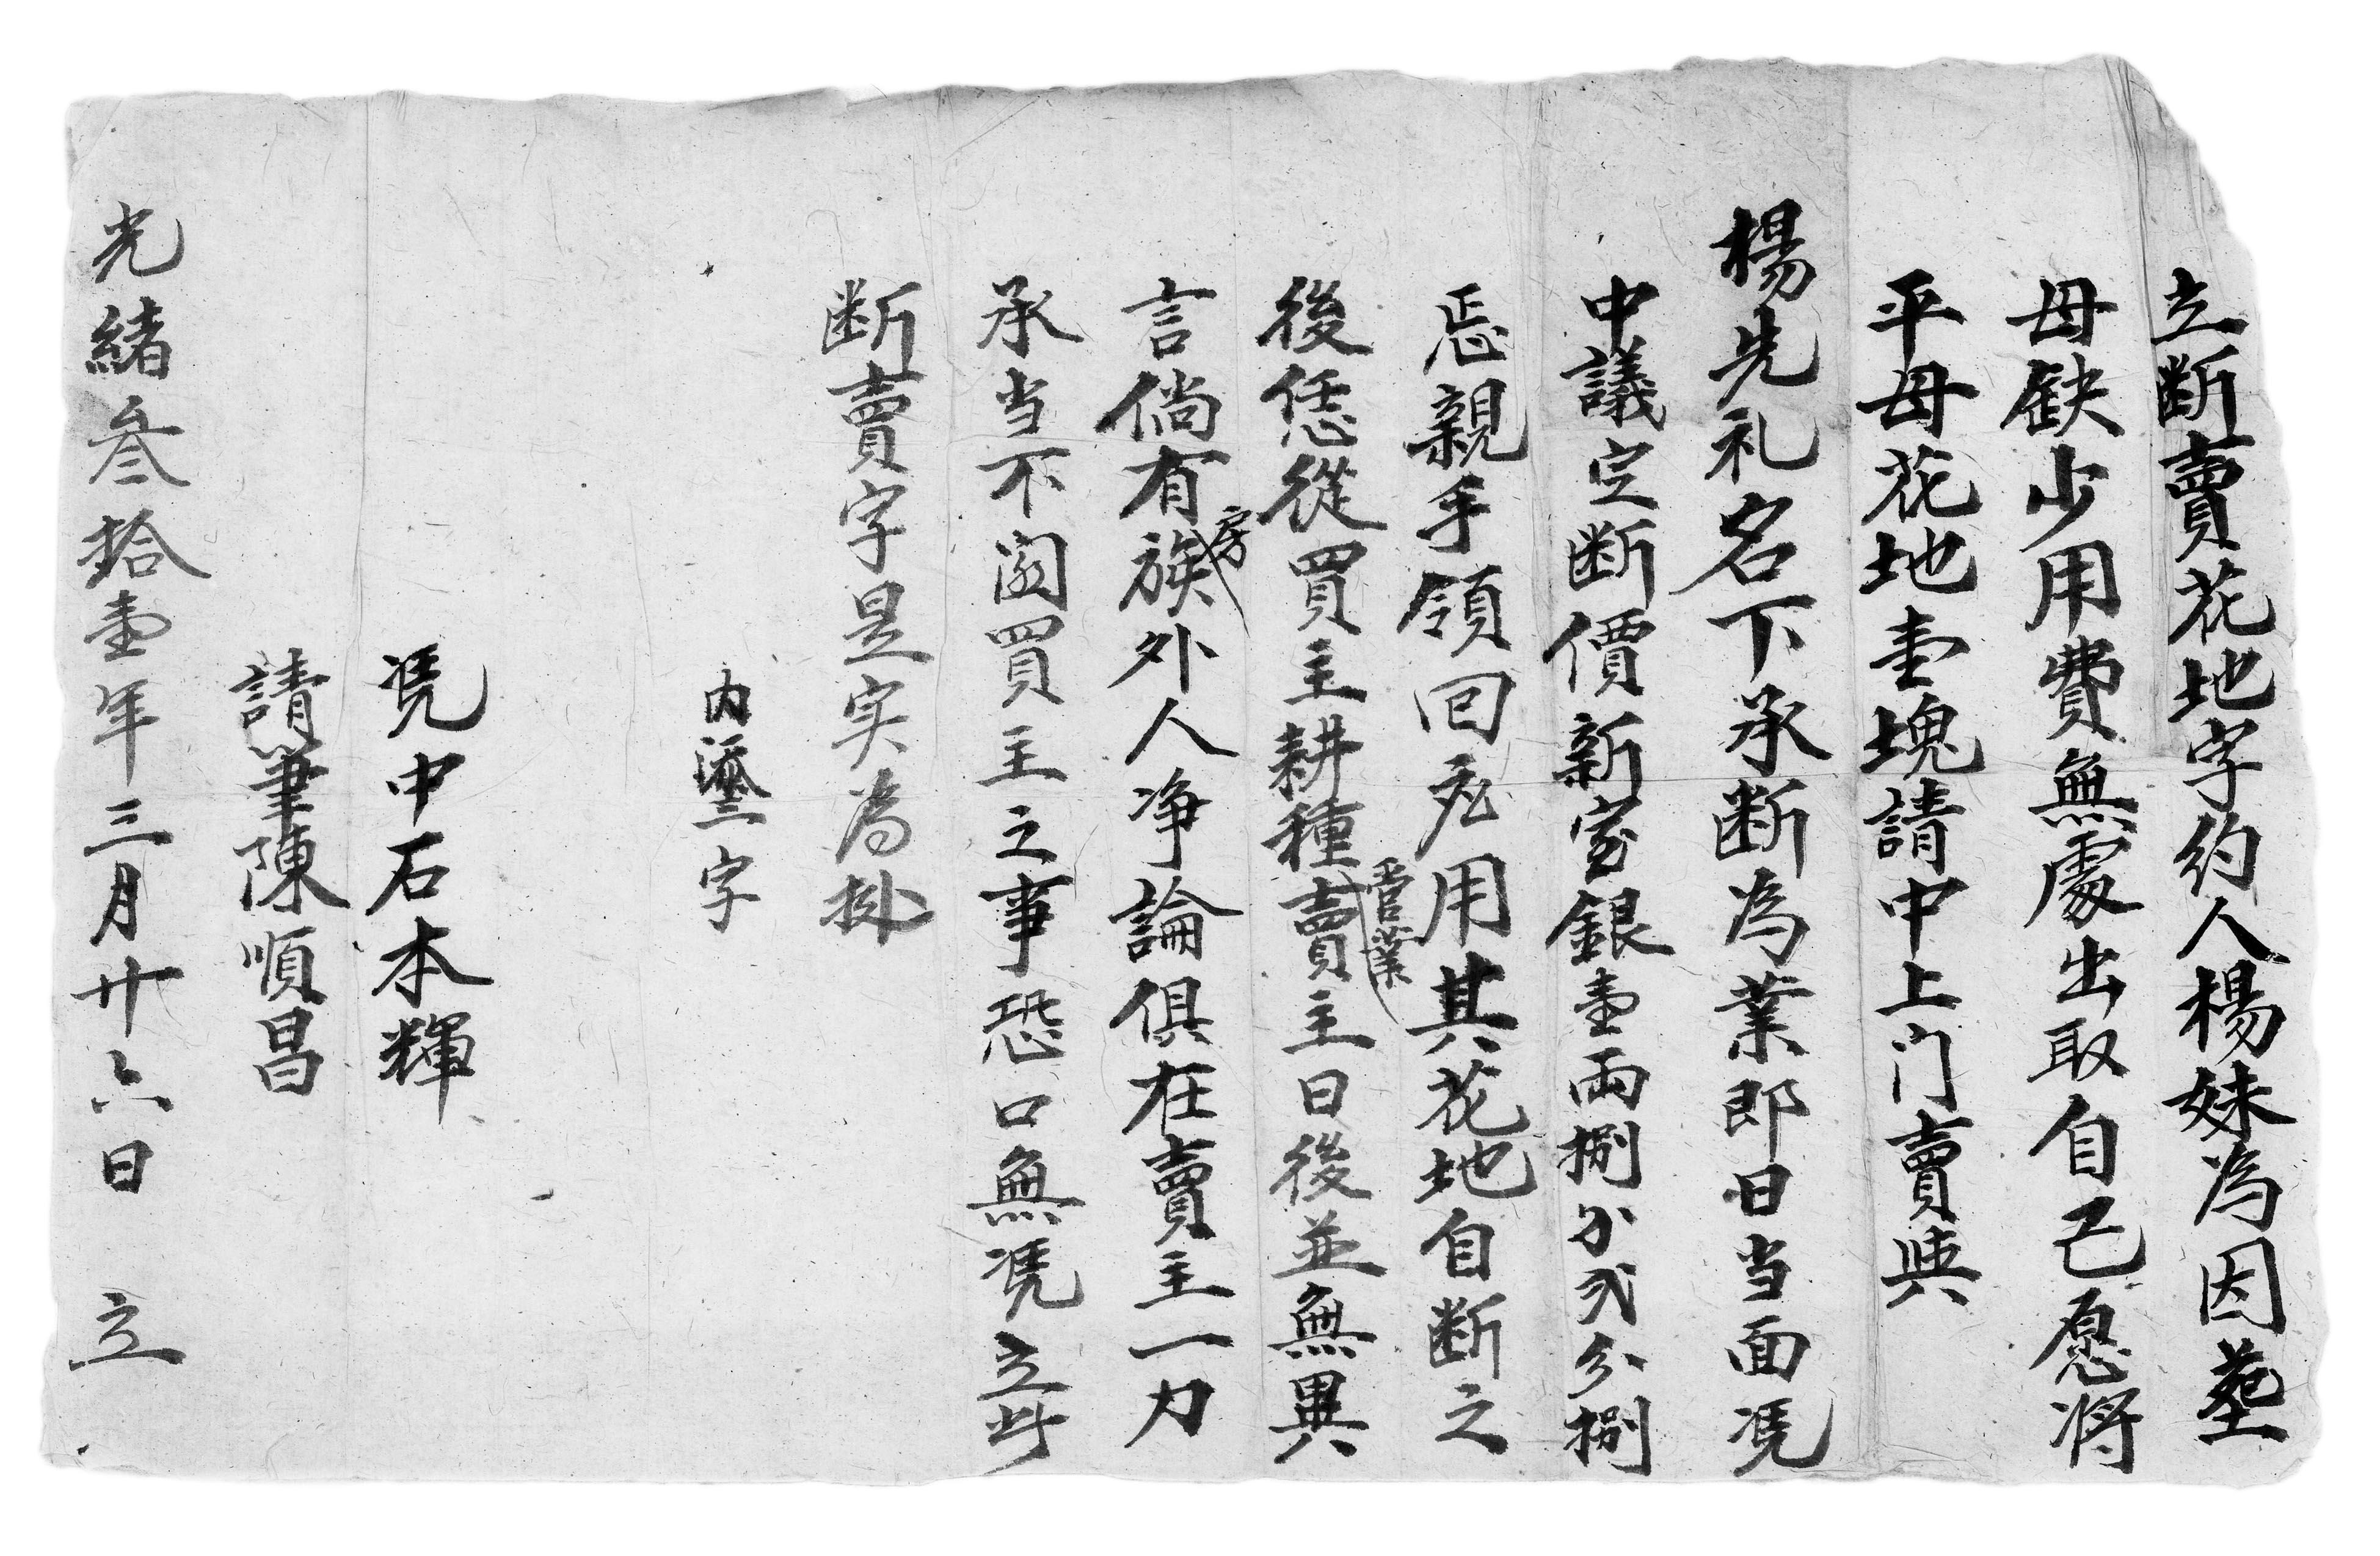 立断賣花地字約人楊妹為因塟
母缺少用費無處出取自己愿将
平母花地壹塊請中上门賣與
楊先礼名下承断為業即日当面凭
中議定断價新宝銀壹両捌分弍分捌
親手領回用其花地自断之
後恁從買主耕種管業賣主日後並無異
言倘有房族外人净論俱在賣主一力
承当不関買主之事恐口無凭立此
断賣字是实為拠
内添三字
凭中石本輝
請筆陳順昌
光緒叁拾壹年三月廿六日 立